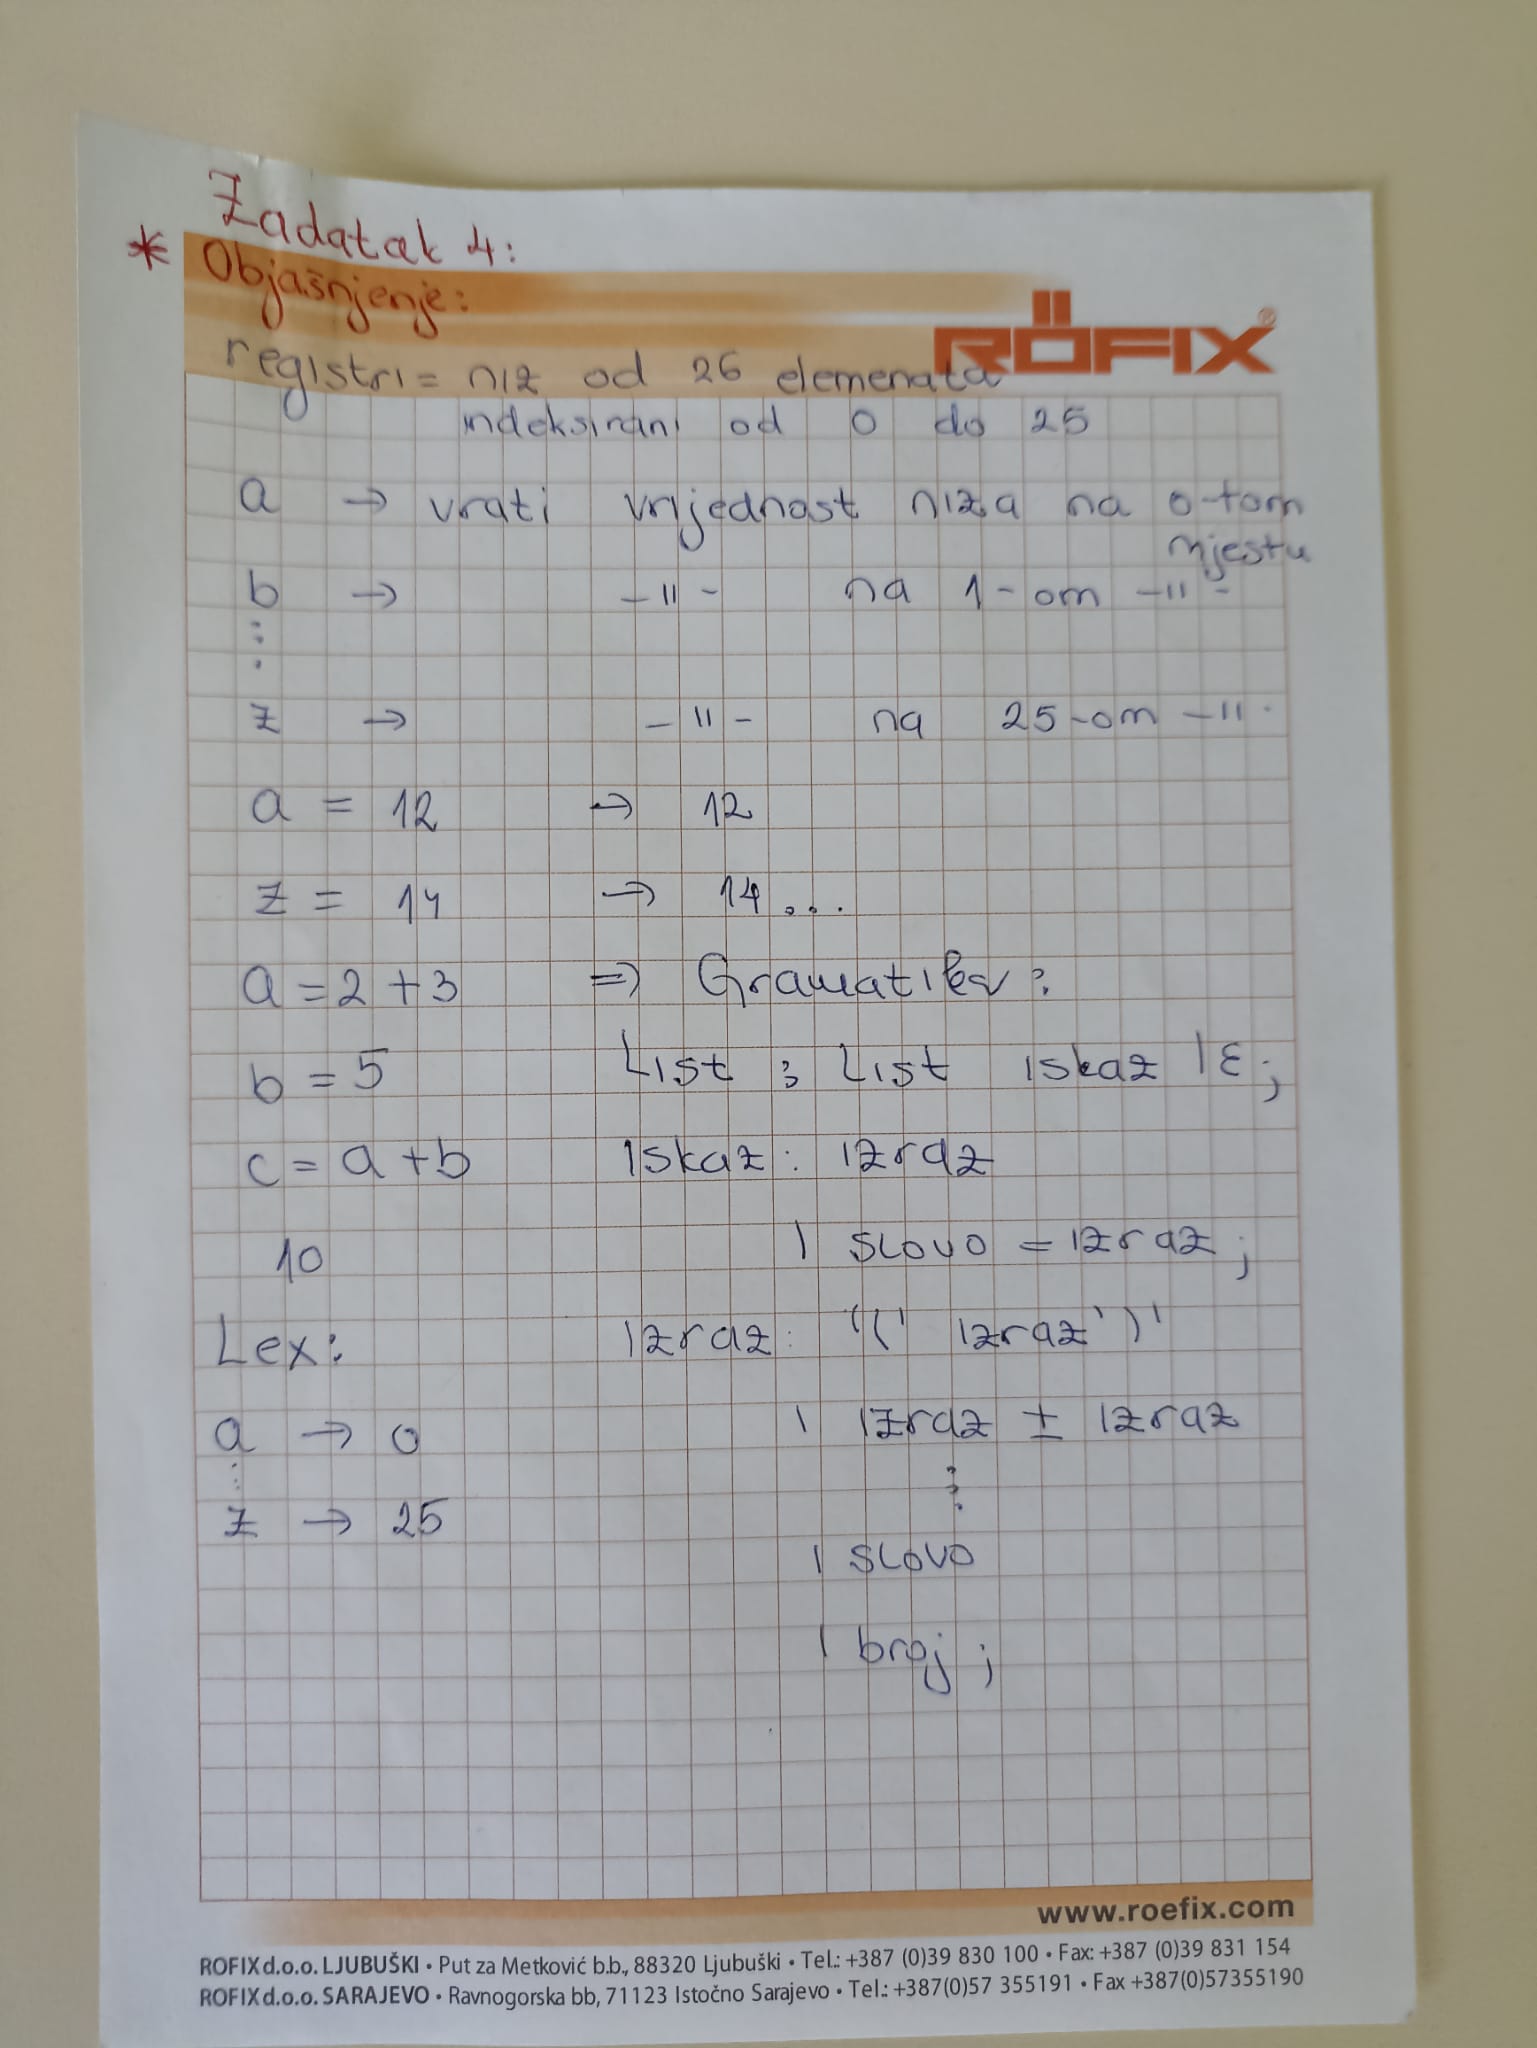 Zadatak 4:
* Objašnjenje:
RÖFIX®
registri = niz od 26 elemenata
indeksirani od 0 do 25
a → vrati vrijednost niza na 0-tom
mjestu
b → -||- na 1-om -||-
⋮
z → -||- na 25-om -||-
a = 12 → 12
z = 14 → 14...
a = 2 + 3 => Gramatika:
b = 5 List : List iskaz | ε ;
c = a + b Iskaz : izraz
10 | SLOVO = izraz ;
Lex: Izraz : '(' izraz ')'
a → 0 | izraz ± izraz
⋮ ⋮
z → 25
| SLOVO
| broj ;
www.roefix.com
ROFIX d.o.o. LJUBUŠKI • Put za Metković b.b., 88320 Ljubuški • Tel.: +387 (0)39 830 100 • Fax: +387 (0)39 831 154
ROFIX d.o.o. SARAJEVO • Ravnogorska bb, 71123 Istočno Sarajevo • Tel.: +387(0)57 355191 • Fax +387(0)57355190